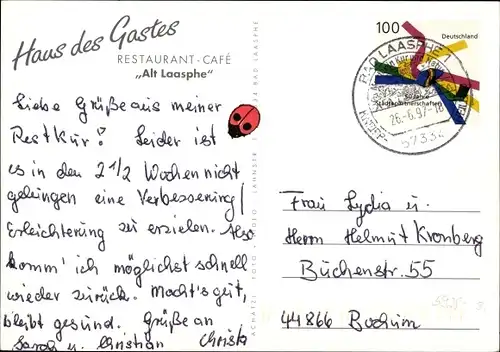 Haus des Gastes
RESTAURANT-CAFÉ
„Alt Laasphe“
Liebe Grüße aus meiner
Restkur! Leider ist
es in den 2 1/2 Wochen nicht
gelungen eine Verbesserung/
Erleichterung zu erzielen. Also
komm' ich möglichst schnell
wieder zurück. Macht's gut,
bleibt gesund. Grüße an
Sarah u. Christian Christa
100
Deutschland
Städtepartnerschaften
BAD LAASPHE 1
26.-6.97-18
57334
Frau Lydia u.
Herrn Helmut Kronberg
Buchenstr. 55
44866 Bochum